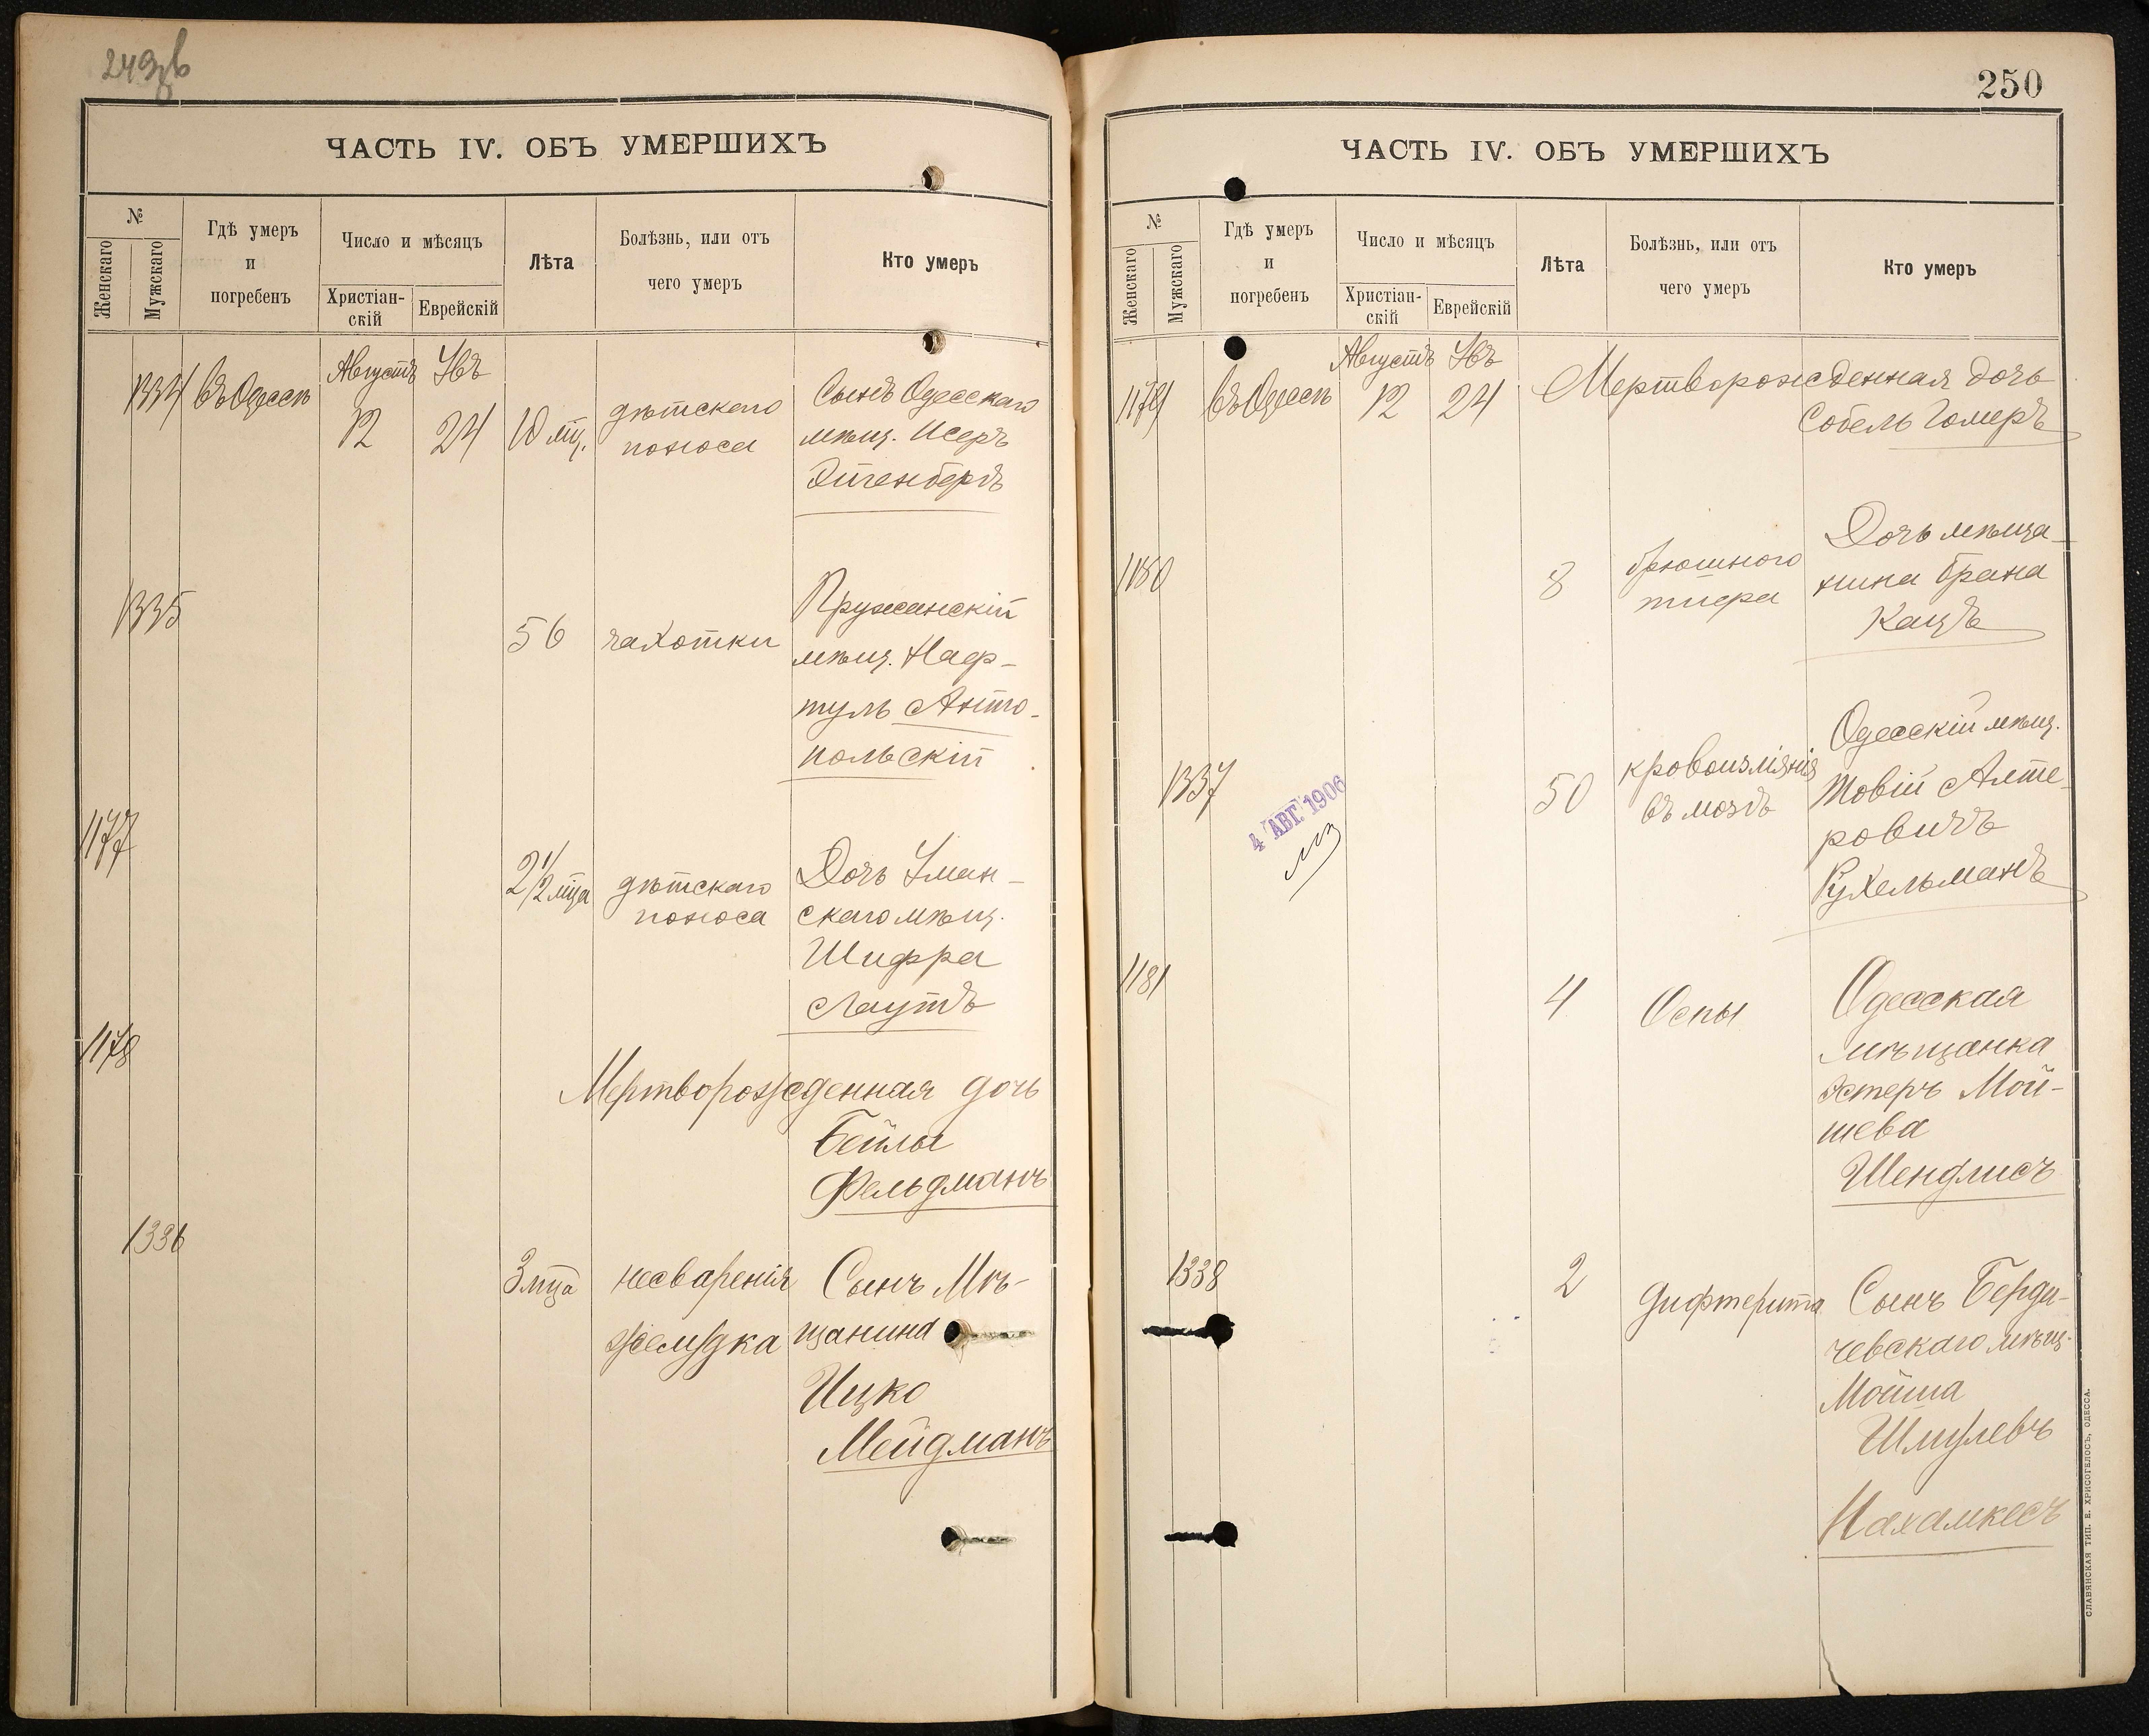 249об
ЧАСТЬ IV. ОБЪ УМЕРШИХЪ
№
Женскаго
Мужскаго
Гдѣ умеръ
и
погребенъ
Число и мѣсяцъ
Христіан-
скій
Еврейскій
Лѣта
Болѣзнь, или отъ
чего умеръ
Кто умеръ
1334
въ Одессѣ
Августъ
12
Увъ
24
10 мц.
дѣтскаго
поноса
Сынъ Одесскаго
мѣщ. Исеръ
Эйгенбергъ
1335
56
чахотки
Пружанскій
мѣщ. Наф-
туль Анто-
польскій
1177
2 1/2 мца
дѣтскаго
поноса
Дочь Уман-
скаго мѣщ.
Шифра
Лаутъ
1178
Мертворожденная дочь
Бейлы
Фельдманъ
1336
3 мца
несваренія
желудка
Сынъ Мѣ-
щанина
Ицко
Мейдманъ
250
ЧАСТЬ IV. ОБЪ УМЕРШИХЪ
№
Женскаго
Мужскаго
Гдѣ умеръ
и
погребенъ
Число и мѣсяцъ
Христіан-
скій
Еврейскій
Лѣта
Болѣзнь, или отъ
чего умеръ
Кто умеръ
1179
въ Одессѣ
Августъ
12
Увъ
24
Мертворожденная дочь
Собель Гомеръ
1180
8
брюшного
тифа
Дочь мѣща-
нина Брана
Кацъ
1337
4 АВГ. 1906
50
кровоизліянія
въ мозгъ
Одесскій мѣщ.
Товій Алте-
ровичъ
Рухельманъ
1181
4
Оспы
Одесская
мѣщанка
Эстеръ Мой-
шева
Шендлисъ
1338
2
дифтерита
Сынъ Берди-
чевскаго мѣщ.
Мойша
Шмулевъ
Нахамкесъ
СЛАВЯНСКАЯ ТИП. Е. ХРИСОГЕЛОСЪ, ОДЕССА.